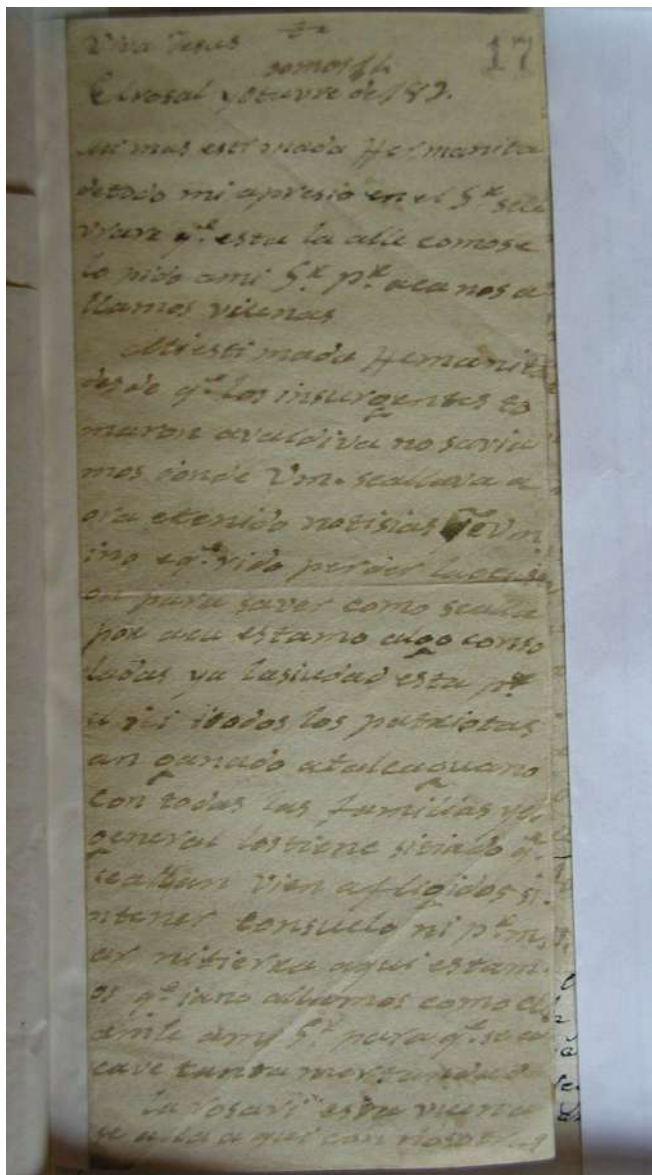 Viva Jesus
17
El rosal y Otuvre de 182.
mi mas estimada Hermanita
detodo mi apresio en el S.r sele
vrare q.e esta la alle comose
lo pido ami S.r p.r aca nos a
llamos vuenas
Mi estimada Hemanita
desde q.e los insurgentes to
maron avaldiva no savia
mos donde Vm. seallava a
ora e tenido notisias que Vm
ino e q.e rido perder la ocasi
on para saver como sealla
por aca estamo algo conso
ladas ya lasiudad esta p.r
el itodos los patriotas
an ganado atalcaguano
con todas las familias yel
general lostiene sitiado q.e
seallan vien afligidos si
ntener consuelo ni p.r m
ar nitierra aqui estam
os q.e ano allamos como
ami S.r para q.e se a
cave tanta mortandad
la rosari esta vuena
se alla aqui con nosotras